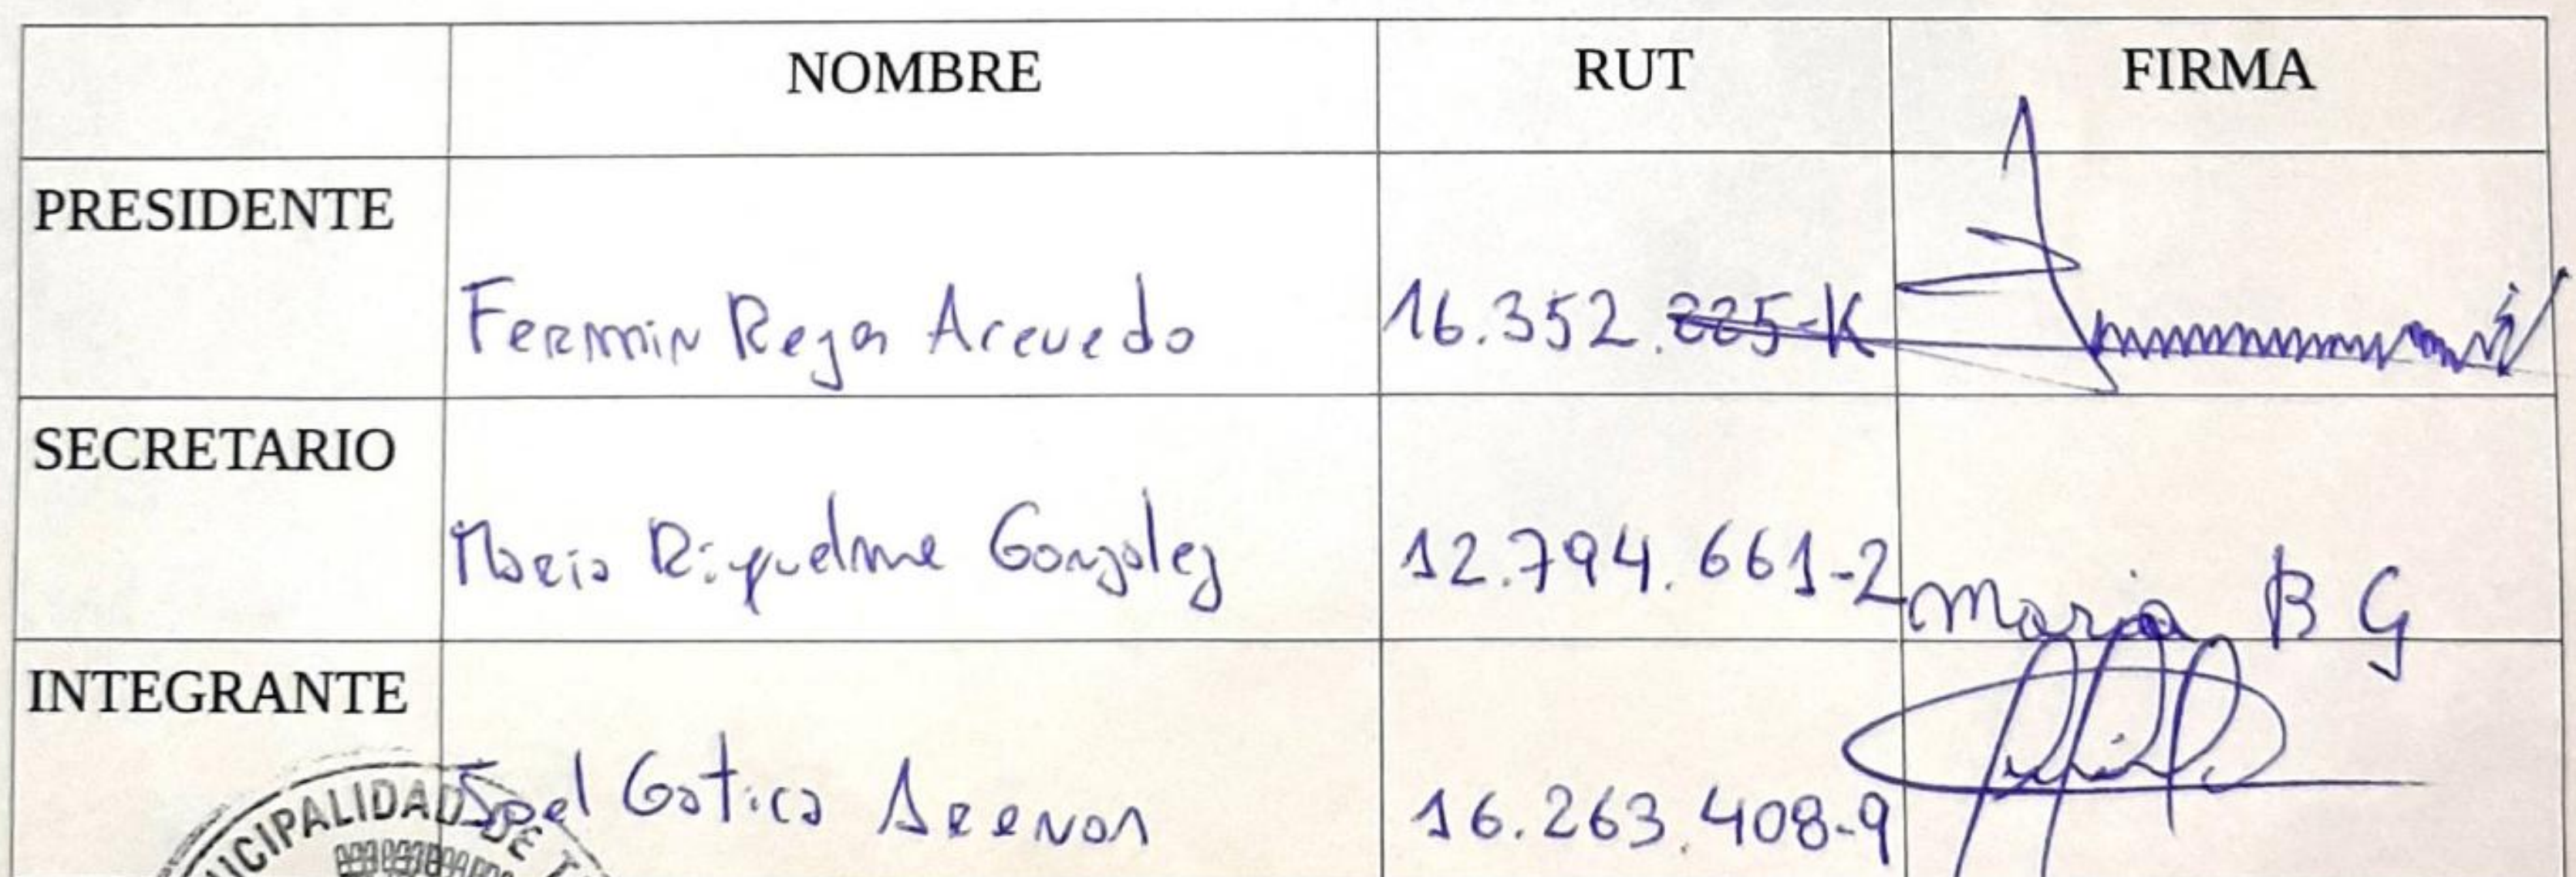 NOMBRE RUT FIRMA
PRESIDENTE
Fermin Reyes Acevedo 16.352.225-K
SECRETARIO
Maria Riquelme Gonzalez 12.794.661-2 Maria B G
INTEGRANTE
Joel Gatica Arenas 16.263.408-9
ICIPALIDAD DE T